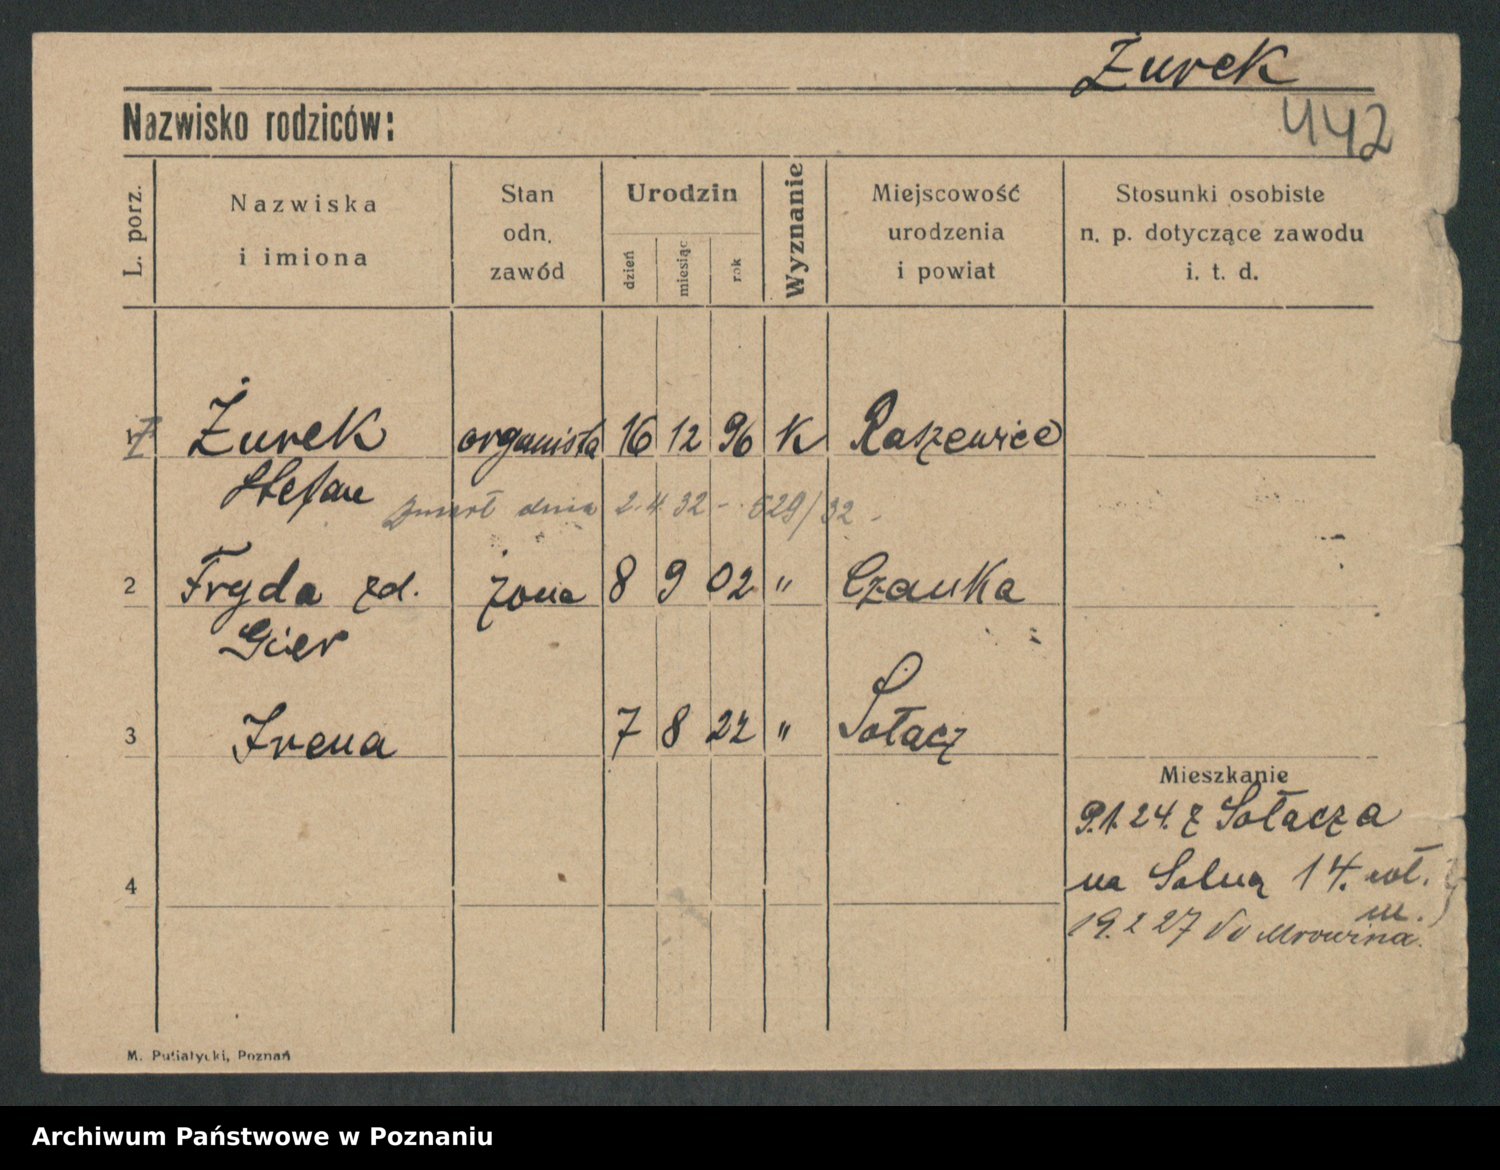 Żurek
442
Nazwisko rodziców:
L. porz.
Nazwiska
i imiona
Stan
odn.
zawód
Urodzin
dzień
miesiąc
rok
Wyznanie
Miejscowość
urodzenia
i powiat
Stosunki osobiste
n. p. dotyczące zawodu
i. t. d.
1 Żurek organista 16 12 96 K Raszewice
Stefan
zmarł dnia 2.4.32 - 529/32 -
2 Fryda zd. żona 8 9 02 " Czanka
Gier
3 Irena 7 8 22 " Sołacz
Mieszkanie
9.1.24. z Sołacza
na Solną 14.
19.2 27 do Mrowina.
4
M. Putiatycki, Poznań
Archiwum Państwowe w Poznaniu